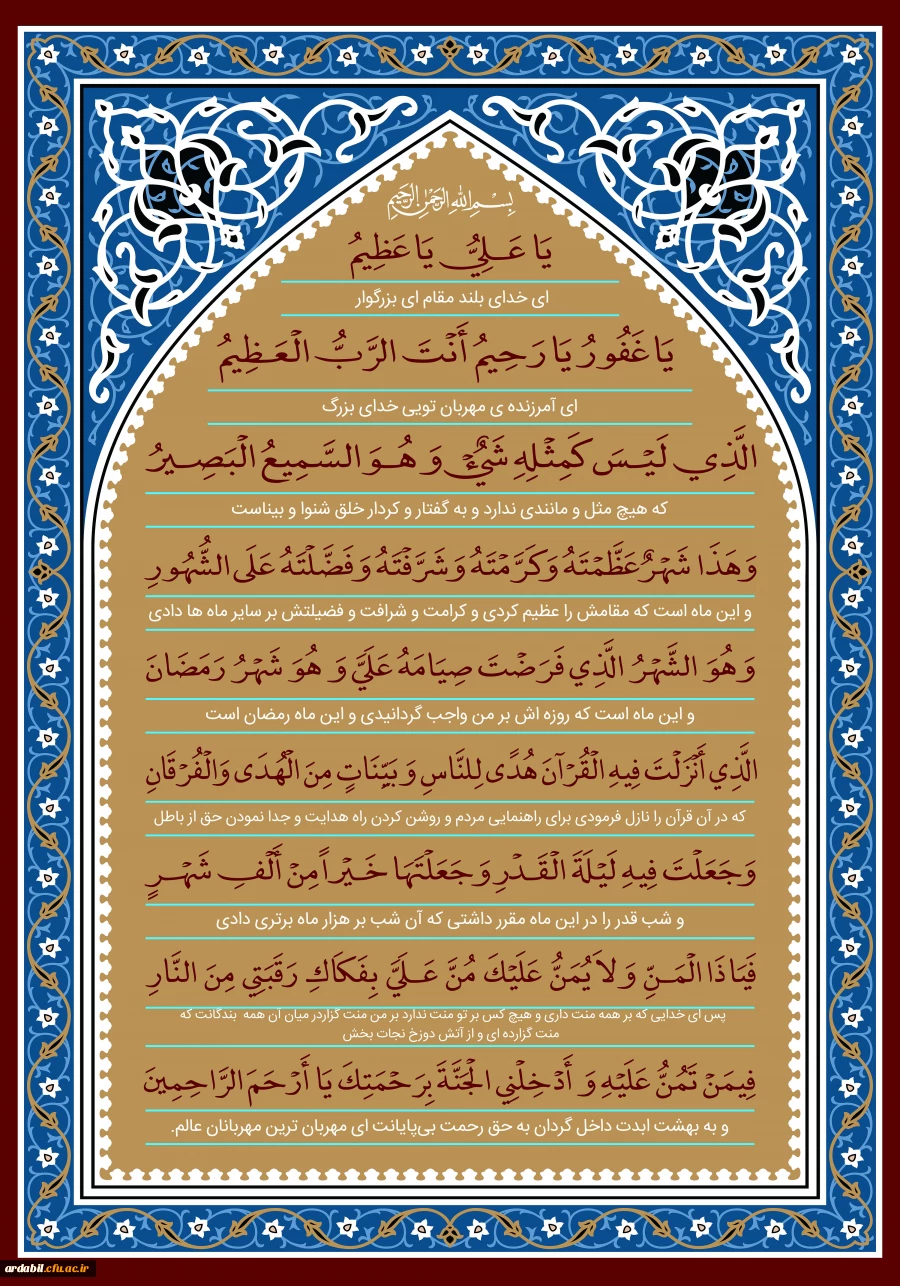 بِسْمِ اللهِ الرَّحْمٰنِ الرَّحِيمِ
يَا عَلِيُّ يَا عَظِيمُ
ای خدای بلند مقام ای بزرگوار
يَا غَفُورُ يَا رَحِيمُ أَنْتَ الرَّبُّ الْعَظِيمُ
ای آمرزنده ی مهربان تویی خدای بزرگ
الَّذِي لَيْسَ كَمِثْلِهِ شَيْءٌ وَ هُوَ السَّمِيعُ الْبَصِيرُ
که هیچ مثل و مانندی ندارد و به گفتار و کردار خلق شنوا و بیناست
وَ هَذَا شَهْرٌ عَظَّمْتَهُ وَ كَرَّمْتَهُ وَ شَرَّفْتَهُ وَ فَضَّلْتَهُ عَلَى الشُّهُورِ
و این ماه است که مقامش را عظیم کردی و کرامت و شرافت و فضیلتش بر سایر ماه ها دادی
وَ هُوَ الشَّهْرُ الَّذِي فَرَضْتَ صِيَامَهُ عَلَيَّ وَ هُوَ شَهْرُ رَمَضَانَ
و این ماه است که روزه اش بر من واجب گردانیدی و این ماه رمضان است
الَّذِي أَنْزَلْتَ فِيهِ الْقُرْآنَ هُدًى لِلنَّاسِ وَ بَيِّنَاتٍ مِنَ الْهُدَى وَالْفُرْقَانِ
که در آن قرآن را نازل فرمودی برای راهنمایی مردم و روشن کردن راه هدایت و جدا نمودن حق از باطل
وَ جَعَلْتَ فِيهِ لَيْلَةَ الْقَدْرِ وَ جَعَلْتَهَا خَيْراً مِنْ أَلْفِ شَهْرٍ
و شب قدر را در این ماه مقرر داشتی که آن شب بر هزار ماه برتری دادی
فَيَا ذَا الْمَنِّ وَ لاَ يُمَنُّ عَلَيْكَ مُنَّ عَلَيَّ بِفَكَاكِ رَقَبَتِي مِنَ النَّارِ
پس ای خدایی که بر همه منت داری و هیچ کس بر تو منت ندارد بر من منت گزاردر میان آن همه بندگانت که
منت گزارده ای و از آتش دوزخ نجات بخش
فِيمَنْ تَمُنُّ عَلَيْهِ وَ أَدْخِلْنِي الْجَنَّةَ بِرَحْمَتِكَ يَا أَرْحَمَ الرَّاحِمِينَ
و به بهشت ابدت داخل گردان به حق رحمت بی‌پایانت ای مهربان ترین مهربانان عالم.
ardabil.cfu.ac.ir